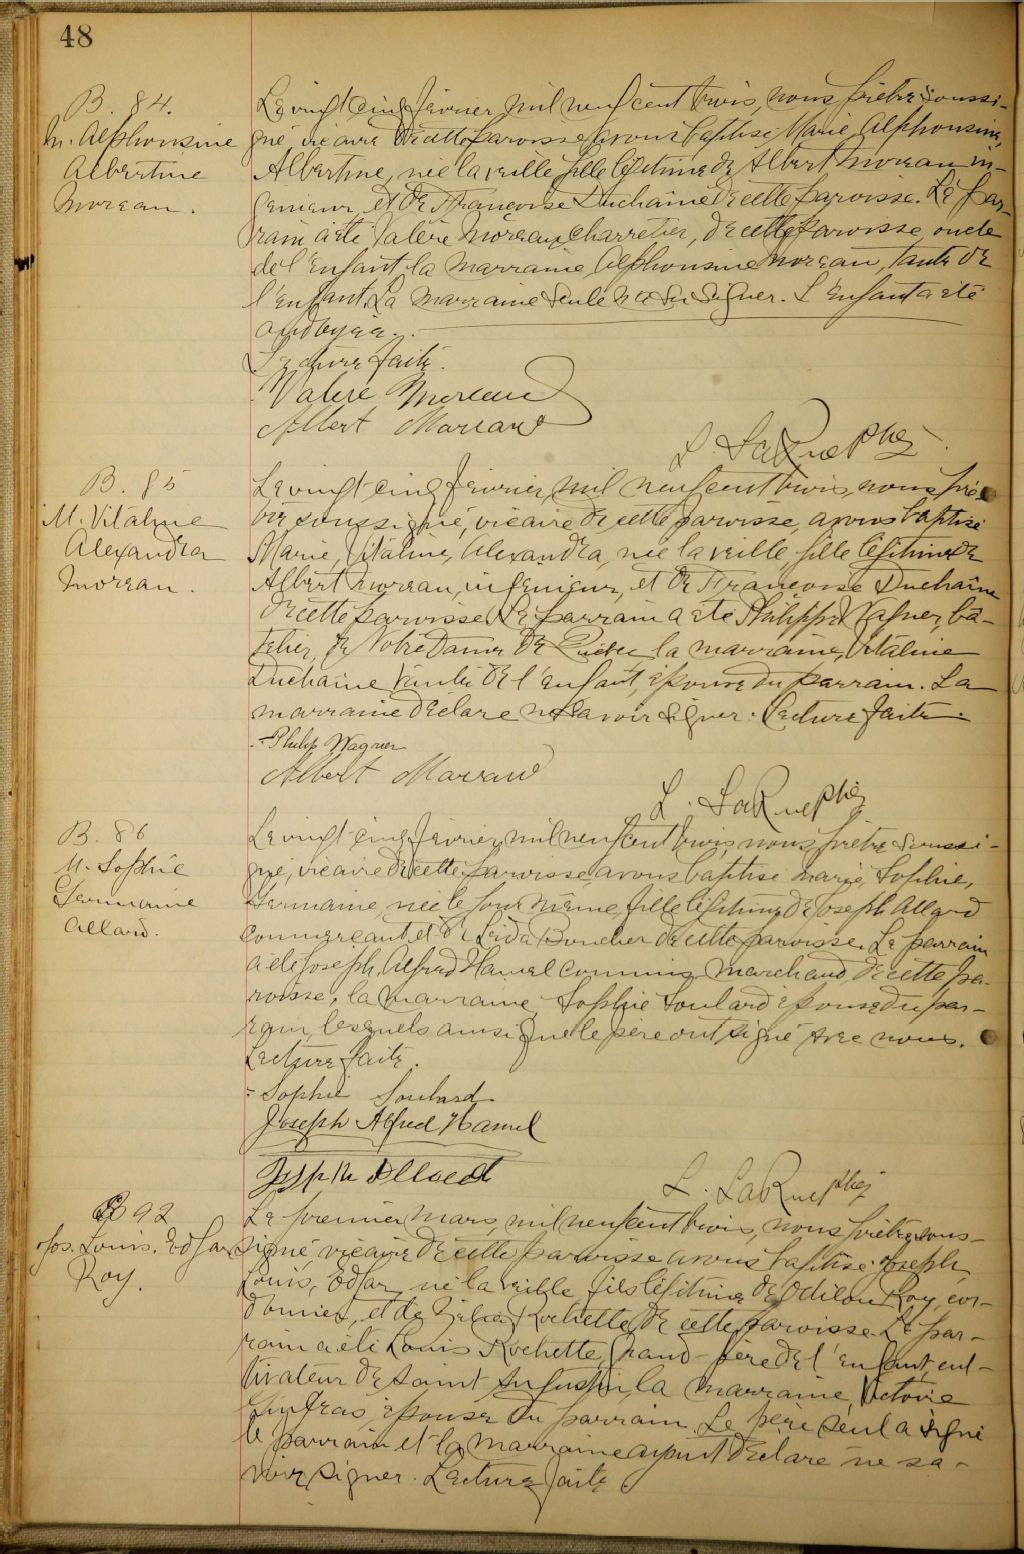 48
B. 84.
M. Alphonsine
Albertine
Moreau.
Le vingt cinq février mil neuf cent trois, nous prêtre soussi-
gné, vicaire de cette paroisse avons baptisé Marie, Alphonsine,
Albertine, née la veille fille légitime de Albert Moreau in-
génieur et de Françoise Duchaine de cette paroisse. Le par-
rain a été Valère Moreau, charretier, de cette paroisse, oncle
de l'enfant, la marraine Alphonsine Moreau, tante de
l'enfant. La marraine seule n'a su signer. L'enfant a été
ondoyée.
Lecture faite.
Valere Moreau
Albert Moreau
L. LaRue ptre
B. 85
M. Vitaline
Alexandra
Moreau.
Le vingt-cinq février, mil neuf cent trois, nous prê-
tre soussigné, vicaire de cette paroisse, avons baptisé
Marie, Vitaline, Alexandra, née la veille, fille légitime de
Albert Moreau, ingénieur, et de Françoise Duchaine
de cette paroisse. Le parrain a été Philippe Vagner, bâ-
telier, de Notre Dame de Québec la marraine, Vitaline
Duchaine tante de l'enfant, épouse du parrain. La
marraine déclare ne savoir signer. Lecture faite.
Philip Wagner
Albert Moreau
L. LaRue ptre
B. 86
M. Sophie
Germaine
Allard.
Le vingt cinq février, mil neuf cent trois, nous prêtre soussi-
gné, vicaire de cette paroisse, avons baptisé Marie, Sophie,
Germaine, née le jour même, fille légitime de Joseph Allard
commerçant et de Léda Boucher de cette paroisse. Le parrain
a été Joseph, Alfred Hamel commis marchand, de cette pa-
roisse, la marraine Sophie Soulard épouse du par-
rain, lesquels ainsi que le père ont signé avec nous.
Lecture faite.
Sophie Soulard
Joseph Alfred Hamel
Joseph Allard
L. LaRue ptre
B 92
Jos. Louis. Edgar
Roy.
Le premier mars, mil neuf cent trois, nous prêtre sous-
signé, vicaire de cette paroisse avons baptisé Joseph,
Louis, Edgar, né la veille fils légitime de Odilon Roy, cor-
donnier, et de Zélia Rochette, de cette paroisse. Le par-
rain a été Louis Rochette, grand-père de l'enfant, cul-
tivateur de Saint Augustin, la marraine, Victorie
Gingras, épouse du parrain. Le père seul a signé
le parrain et la marraine ayant déclaré ne sa-
voir signer. Lecture faite